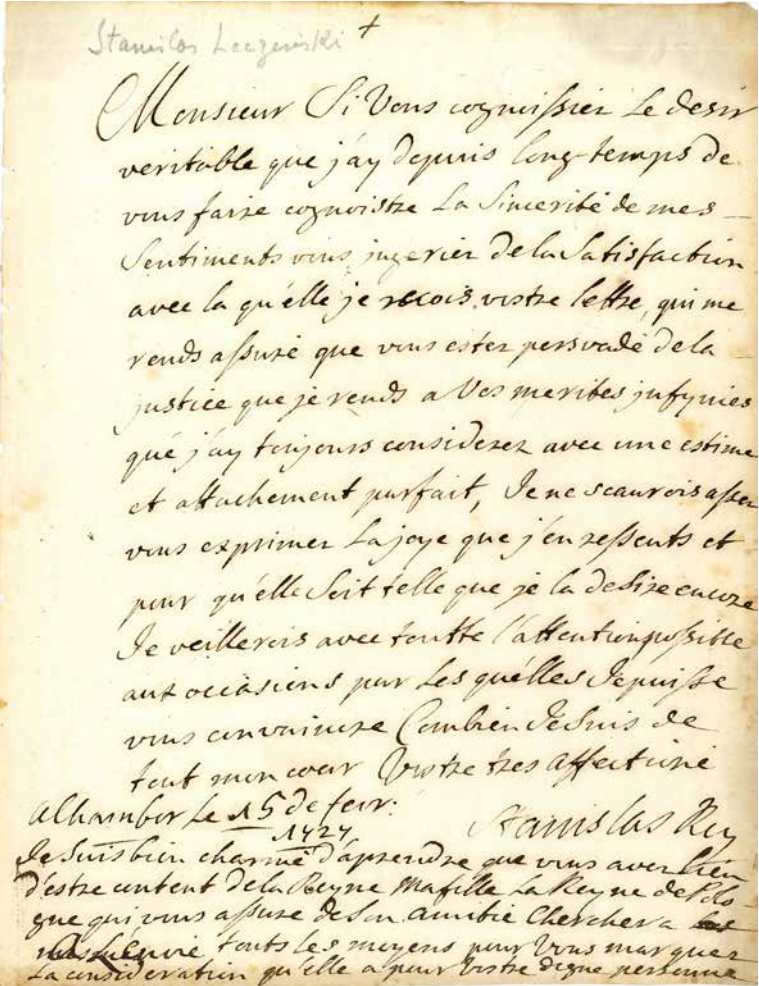 Stanislas Leczinski +
Monsieur Si Vous cognoissiez Le desir
veritable que j'ay depuis long-temps de
vous faire cognoistre La Sincerité de mes
Sentiments vous jugeriez de la Satisfaction
avec la qu'elle je recois vostre lettre, qui me
rends assuré que vous estez persvadé de la
justice que je rends a Vos merites
qué j'ay toujours considerez avec une estime
et attachement parfait, Je ne scaurois assez
vous exprimer La joye que j'en ressents et
pour qu'elle Soit telle que je la desire encore
Je veillerois avec toutte l'attention possible
aux occasions par Les qu'elles Je puisse
vous convaincre Combien Je Suis de
tout mon coeur Vostre tres affectioné
a Chambor Le 15 de fevr:
1727
Stanislas Roy
Je Suis bien charmé d'aprendre que vous avez lieu
d'estre content de la Reyne Ma fille La Reyne de Polo
gne qui vous assure de Son amitié Cherchera
touts les moyens pour Vous marquer
La consideration qu'elle a pour Vostre digne personne